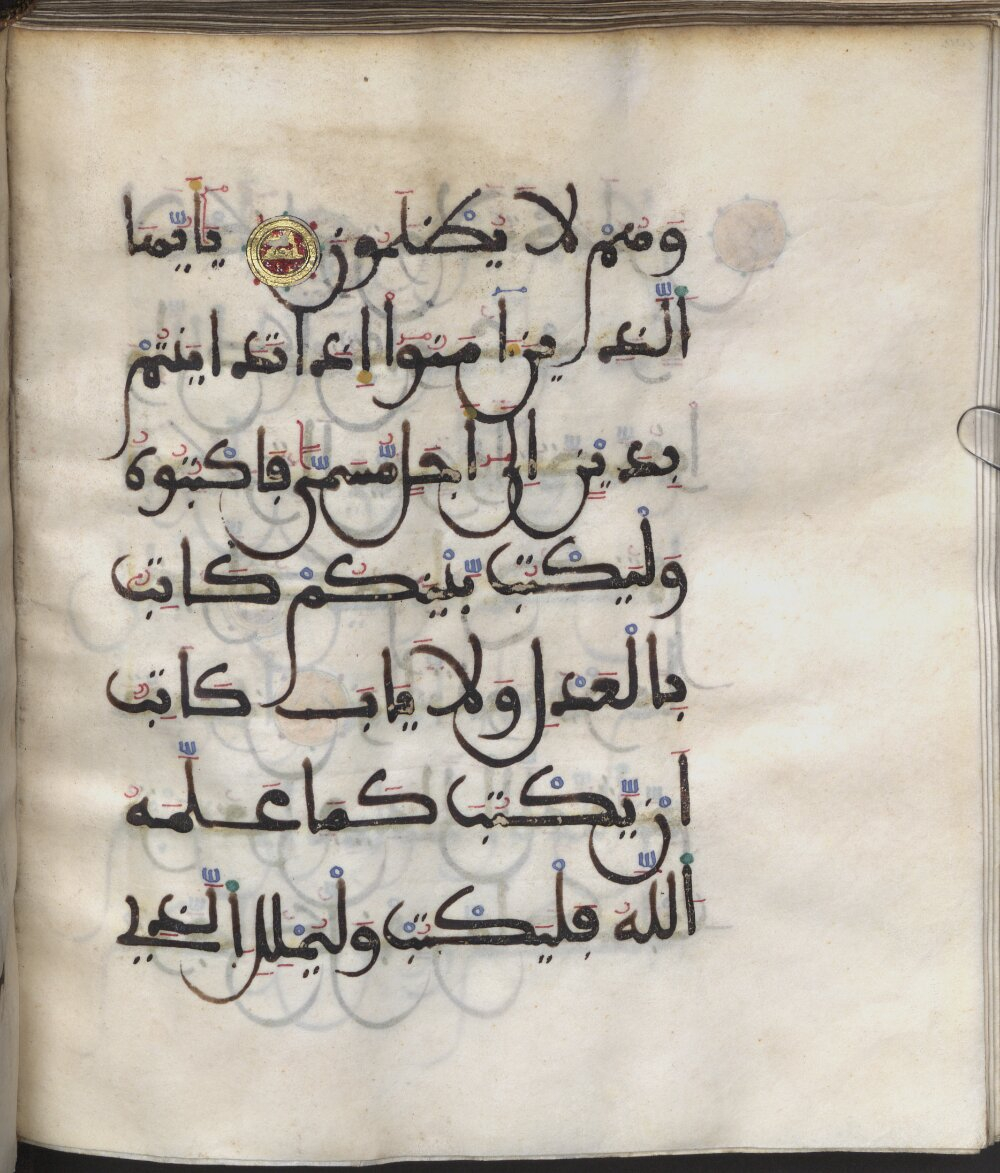 وَهُمْ لَا يُظْلَمُونَ يَٰأَيُّهَا
ٱلَّذِينَ ءَامَنُوٓا۟ إِذَا تَدَايَنتُمْ
بِدَيْنٍ إِلَىٰٓ أَجَلٍ مُّسَمًّى فَٱكْتُبُوهُ
وَلْيَكْتُب بَّيْنَكُمْ كَاتِبٌۢ
بِٱلْعَدْلِ وَلَا يَابَ كَاتِبٌ
أَن يَّكْتُبَ كَمَا عَلَّمَهُ
ٱللَّهُ فَلْيَكْتُبْ وَلْيُمْلِلِ ٱلَّذِي